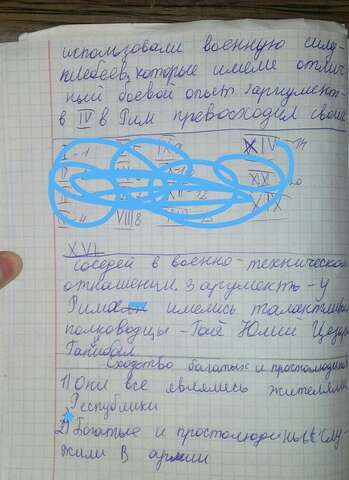 использовали военную силу
плебеев, которые имели отлич
ный боевой опыт 2 аргумент-
в IV в Рим превосходил своих
I-1
XIV-14
XIX
VIII 8
XVI
соседей в военно-техническом
отношении. 3 аргументь-у
Рима имелись талантливые
полководцы-Гай Юлий Цезарь
Ганибал
Сходство богатых и простолюдинов
1) Они все являлись жителями
Республики
2) Богатые и простолюдины слу-
жили в армии